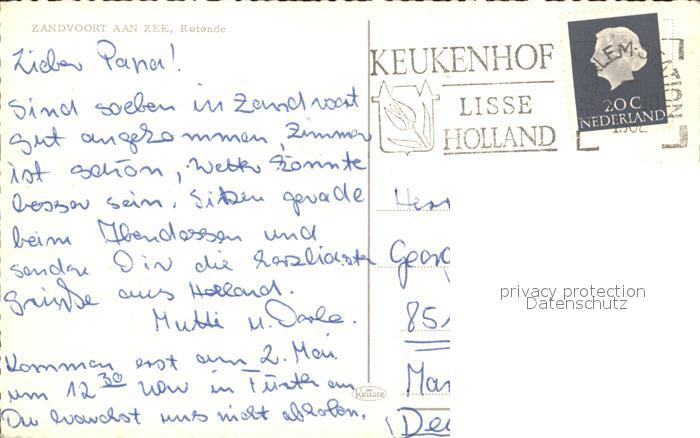 ZANDVOORT AAN ZEE, Rotonde
Lieber Papa!
Sind soeben in Zandvoort
gut angekommen, Zimmer
ist schön, Wetter könnte
besser sein. Sitzen gerade
beim Abendessen und
senden Dir die herzlichsten
Grüße aus Holland.
Mutti u.
Kommen erst am 2. Mai
um 12 30 Uhr in Fürth an
Du brauchst uns nicht abholen.
KRÜGER
KEUKENHOF
LISSE
HOLLAND
20 C
NEDERLAND
Herr
Georg
85
privacy protection
Datenschutz